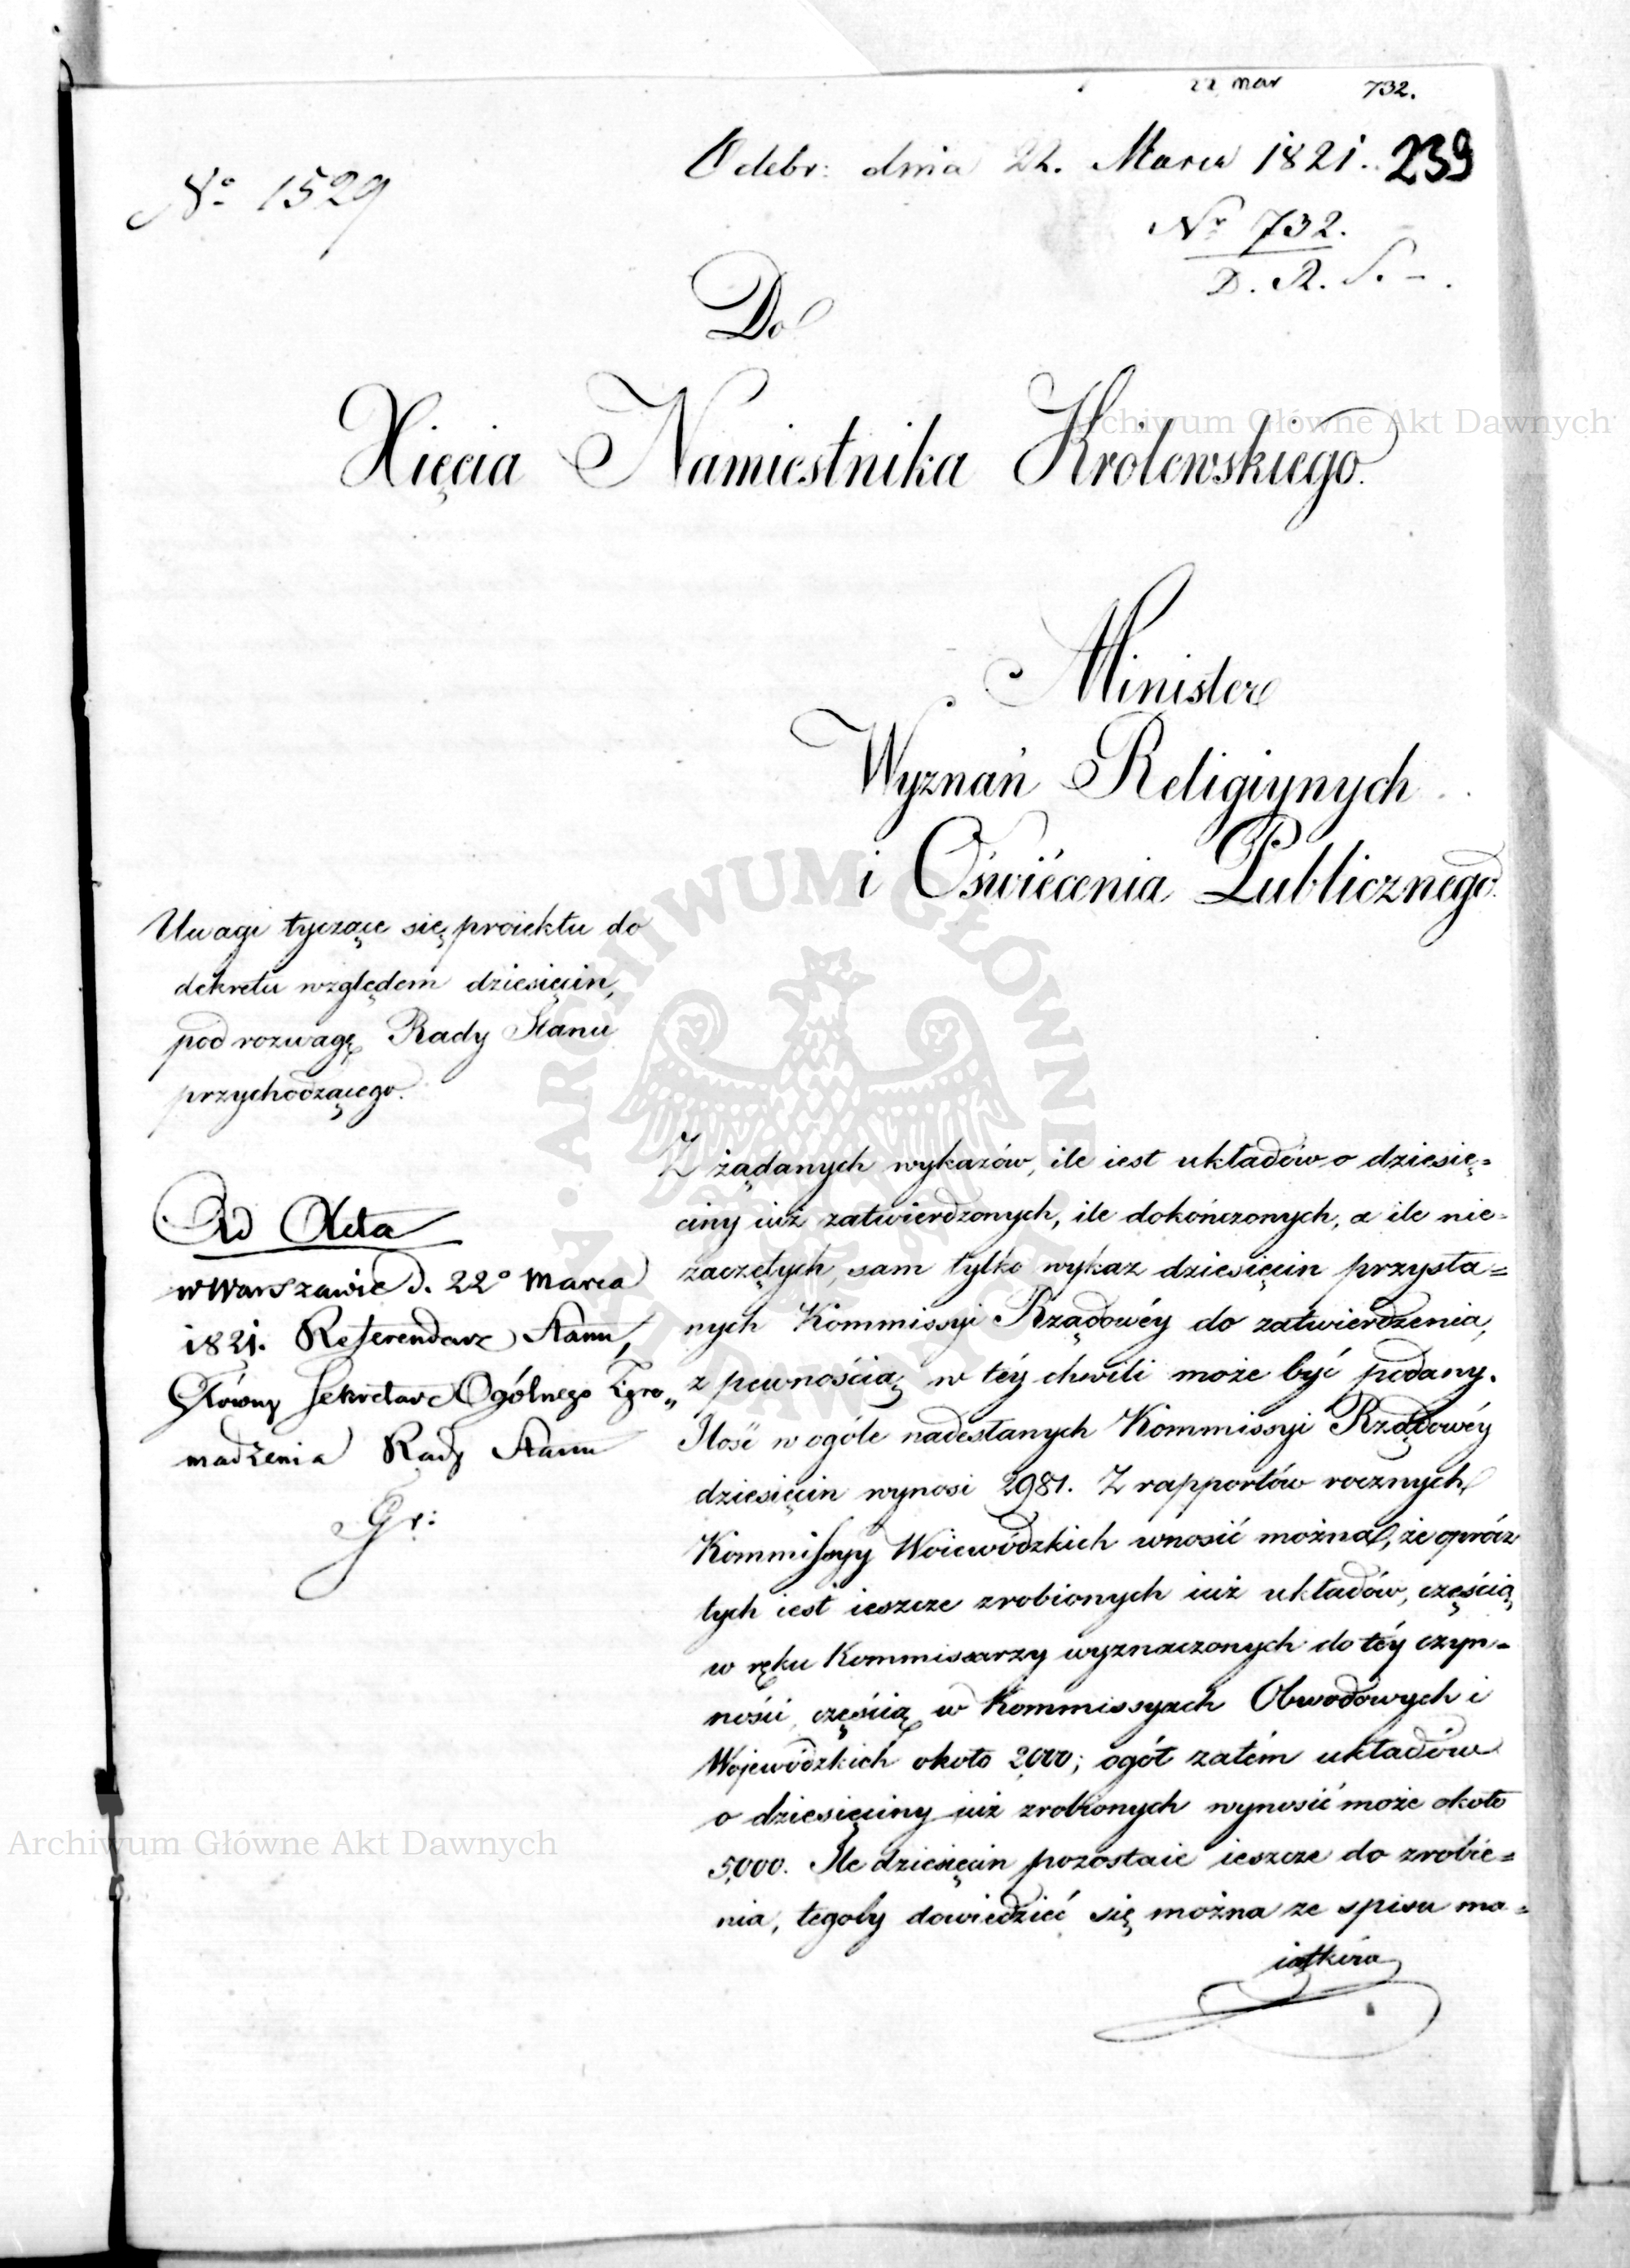 22 mar 732.
Odebr: dnia 22. Marca 1821. 239
No 1529
Nr 732.
D. R. S. -.
Do
Xięcia Namiestnika Królewskiego.
Minister
Wyznań Religiynych
i Oświécenia Publicznego.
Uwagi tyczące się proiektu do
dekretu względem dziesięcin,
pod rozwagę Rady Stanu
przychodzącego.
Ad Acta
w Warszawie d. 22o Marca
1821. Referendarz Stanu,
Główny Sekretarz Ogólnego Zgro„
madzenia Rady Stanu
Gr:
Z żądanych wykazów, ile iest układów o dziesię=
ciny iuż zatwierdzonych, ile dokończonych, a ile nie=
zaczętych, sam tylko wykaz dziesięcin przysła=
nych Kommissyi Rządowéy do zatwierdzenia,
z pewnością w téy chwili może być podany.
Ilość w ogóle nadesłanych Kommissyi Rządowéy
dziesięcin wynosi 2981. Z rapportów rocznych
Kommissyy Woiewódzkich wnosić można, że oprócz
tych iest ieszcze zrobionych iuż układów, częścią
w ręku Kommissarzy wyznaczonych do téy czyn=
ności, częścią w Kommissyach Obwodowych i
Wojewódzkich około 2,000; ogół zatém układów
o dziesięciny iuż zrobionych wynosić może około
5,000. Ile dziesięcin pozostaie ieszcze do zrobie=
nia, tegoby dowiedzieć się można ze spisu ma=
iątków
Archiwum Główne Akt Dawnych
ARCHIWUM GŁÓWNE AKT DAWNYCH
Archiwum Główne Akt Dawnych